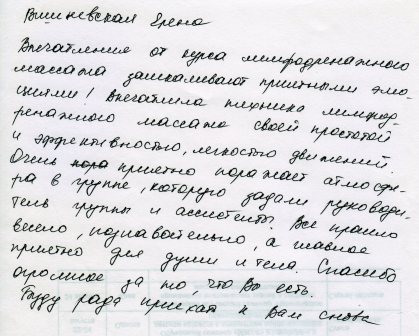 Вишневская Елена
Впечатления от курса лимфодренажного
массажа зашкаливают приятными эмо-
циями! Впечатлила техника лимфод-
ренажного массажа своей простотой
и эффективностью, легкостью движений.
Очень приятно поражает атмосфе-
ра в группе, которую задали руководи-
тель группы и ассистенты. Все прошло
весело, познавательно, а главное
приятно для души и тела. Спасибо
огромное за то, что Вы есть.
Буду рада приехать к Вам снова